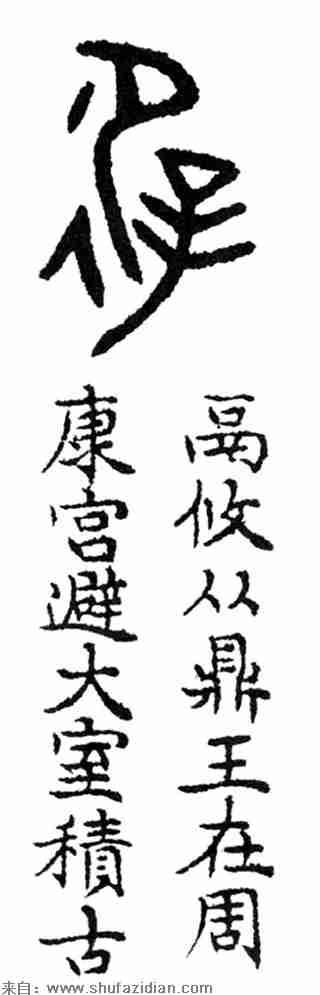 鬲攸从鼎王在周
康宮避大室積古
来自：www.shufazidian.com